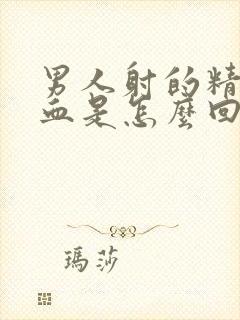 男人射的精
血是怎麼回
瑪莎